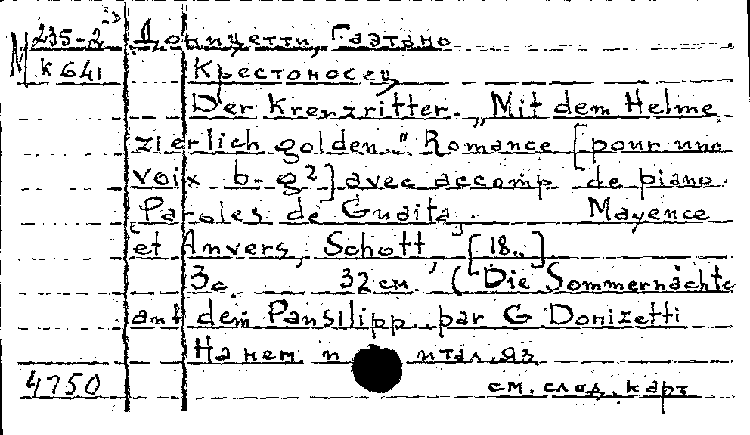 М 235-2 23 Доницетти, Гаэтано
К 641 Крестоносец
Der Kreuzritter. „Mit dem Helme
zierlich golden..." Romance [pour une
voix b-g2] avec accomp de piano.
[Paroles de Guaita]. Mayence
et Anvers, Schott, [18..]
3с. 32 см. (Die Sommernächte
auf dem Pansilipp par G Donizetti
На нем и итал. яз
4750 см. след. карт